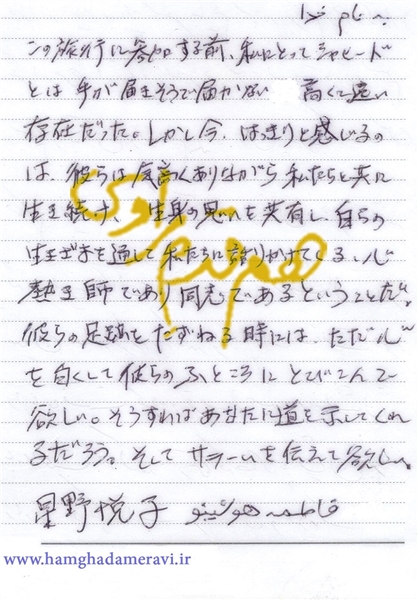 به نام خدا
この旅行に参加する前、私にとってシャヒード
とは手が届きそうで届かない 高くて遠い
存在だった。しかし今、はっきりと感じるの
は、彼らは気高くありながら私たちと共に
生き続け、生身の思いを共有し、自らの
生きざまを通して私たちに語りかけてくる、心
熱き師であり同志であるということだ。
彼らの足跡をたずねる時には、ただ心
を白くして彼らのふところにとびこんで
欲しい。そうすればあなたに道を示してくれ
るだろう。そして サラームを伝えて欲しい。
星野悦子 فاطمه هوشینو
www.hamghadameravi.ir